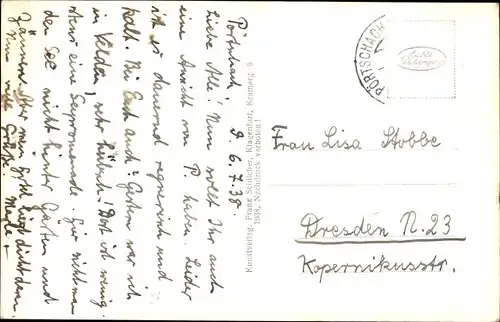 Pörtschach
D. 6.7.38.
Liebe Alle! Nun sollt Ihr auch
eine Ansicht von P. haben. Leider
ist es dauernd regnerisch und
kalt. Bei Euch auch? Gestern war ich
in Velden, sehr hübsch! Dort ist wenig-
stens eine Seepromenade. Hier sieht man
den See nicht hinter Gärten und
Zäunen. Nur mein liegt dicht dran.
Nun viele Grüße.
Kunstverlag. Franz Schilcher, Klagenfurt, Kramerg. 9
1938, Nachdruck verboten!
PÖRTSCHACH
Frau Lisa Stobbe
Dresden N. 23
Kopernikusstr.